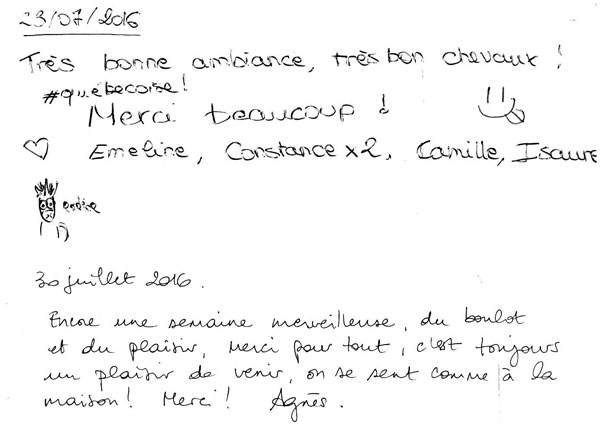 23/07/2016
Très bonne ambiance, très bon chevaux !
#québecoise!
Merci beaucoup !
♡ Emeline, Constance x2, Camille, Isaure
30 juillet 2016.
Encore une semaine merveilleuse, du boulot
et du plaisir, Merci pour tout, c'est toujours
un plaisir de venir, on se sent comme à la
maison! Merci! Agnès.